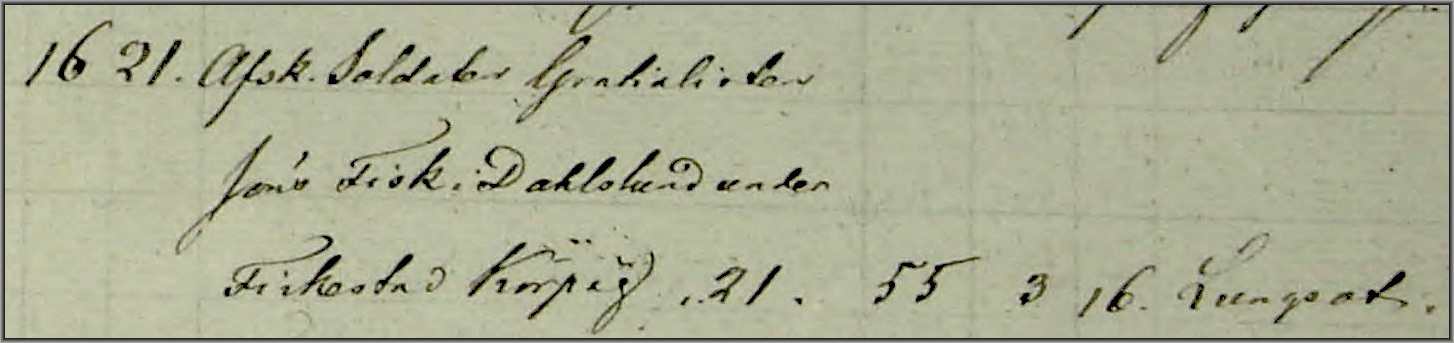 16 21. Afsk. Soldaten Gratialisten
Jöns Fisk i Dahlslund under
Fickestad 21. 55 3 16. Lungsot.